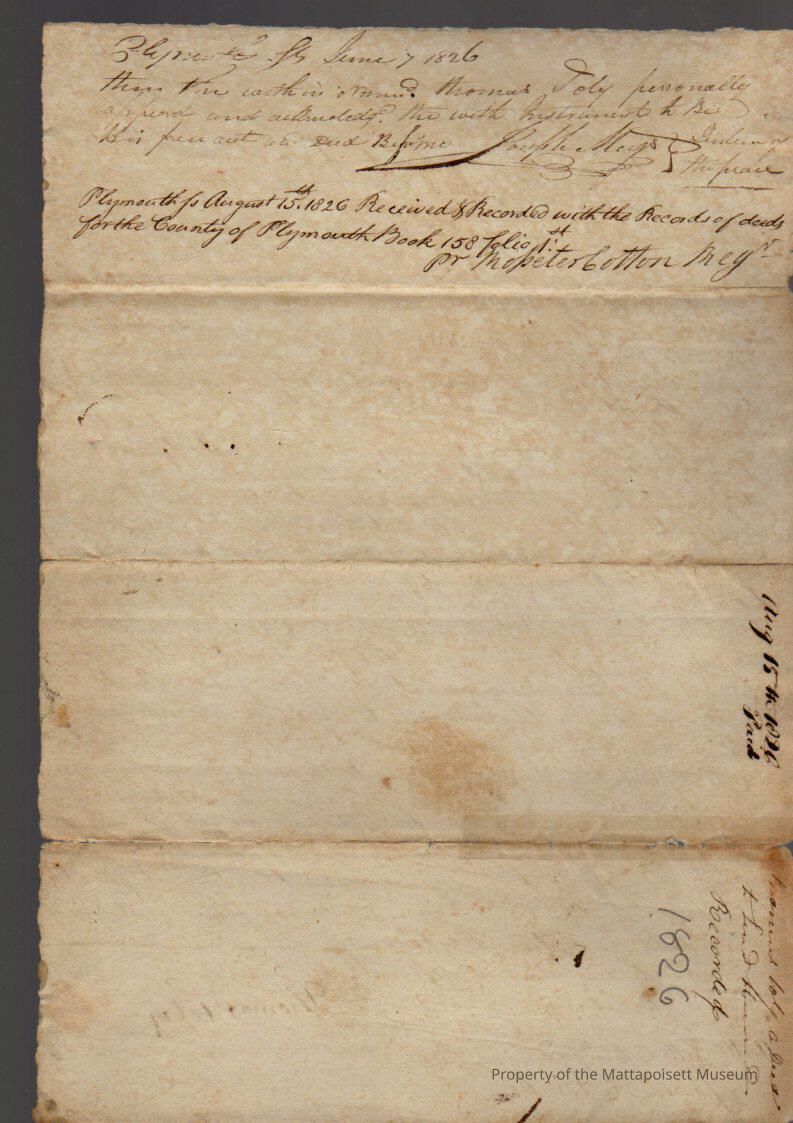 Plymouth Ss June 7 1826
then the within Named thomas Toby personally
appeard and acknoledgd the with Instrument to Be
His free act and Deed Before me Joseph Meigs } Justice of
the peace
Plymouth ss August 15th. 1826 Received & Recorded with the Records of deeds
for the County of Plymouth Book 158 folio 1st
pr Rosseter Cotton Regr
Aug 15th 1826
Paid
thomas toby a Deed
to
Recorded
1826
Thomas toby
Property of the Mattapoisett Museum